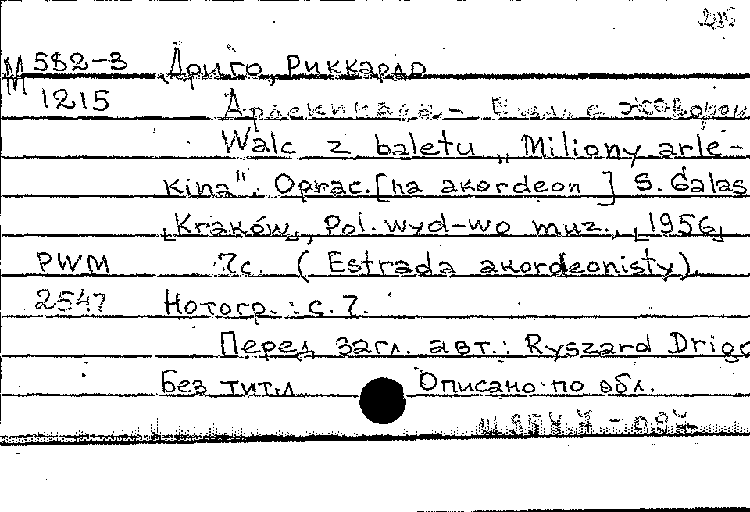 М 582-3 Дриго, Риккардо
1215 Арлекинада -
Walc z baletu „Miliony arle-
kina". Oprac. [na akordeon] S. Galas
[Kraków], Pol. wyd-wo muz., [1956]
PWM 7с. (Estrada akordeonisty).
2547 Нотогр.: с. 7.
Перед загл. авт.: Ryszard Drigo
Без тит.л Описано по обл.